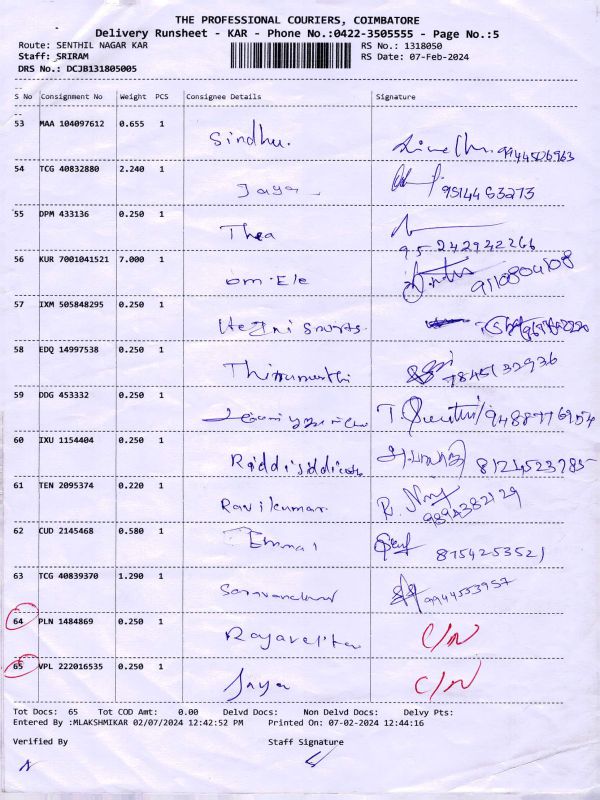 THE PROFESSIONAL COURIERS, COIMBATORE
Delivery Runsheet - KAR - Phone No.:0422-3505555 - Page No.:5
Route: SENTHIL NAGAR KAR RS No.: 1318050
Staff: SRIRAM RS Date: 07-Feb-2024
DRS No.: DCJB131805005
S No Consignment No Weight PCS Consignee Details Signature
53 MAA 104097612 0.655 1 Sindhu. 9944506963
54 TCG 40832880 2.240 1 Jaya 9514463273
55 DPM 433136 0.250 1 Thea
95 242942266
56 KUR 7001041521 7.000 1 om. Ele 9110804108
57 IXM 505848295 0.250 1
58 EDQ 14997538 0.250 1 Thirumurthi 7845132936
59 DDG 453332 0.250 1 9488776954
60 IXU 1154404 0.250 1 8124523785
61 TEN 2095374 0.220 1 Ravikumar 9894382129
62 CUD 2145468 0.580 1 8154253521
63 TCG 40839370 1.290 1 9944553957
64 PLN 1484869 0.250 1 C/N
65 VPL 222016535 0.250 1 Jaya C/N
Tot Docs: 65 Tot COD Amt: 0.00 Delvd Docs: Non Delvd Docs: Delvy Pts:
Entered By :MLAKSHMIKAR 02/07/2024 12:42:52 PM Printed On: 07-02-2024 12:44:16
Verified By Staff Signature